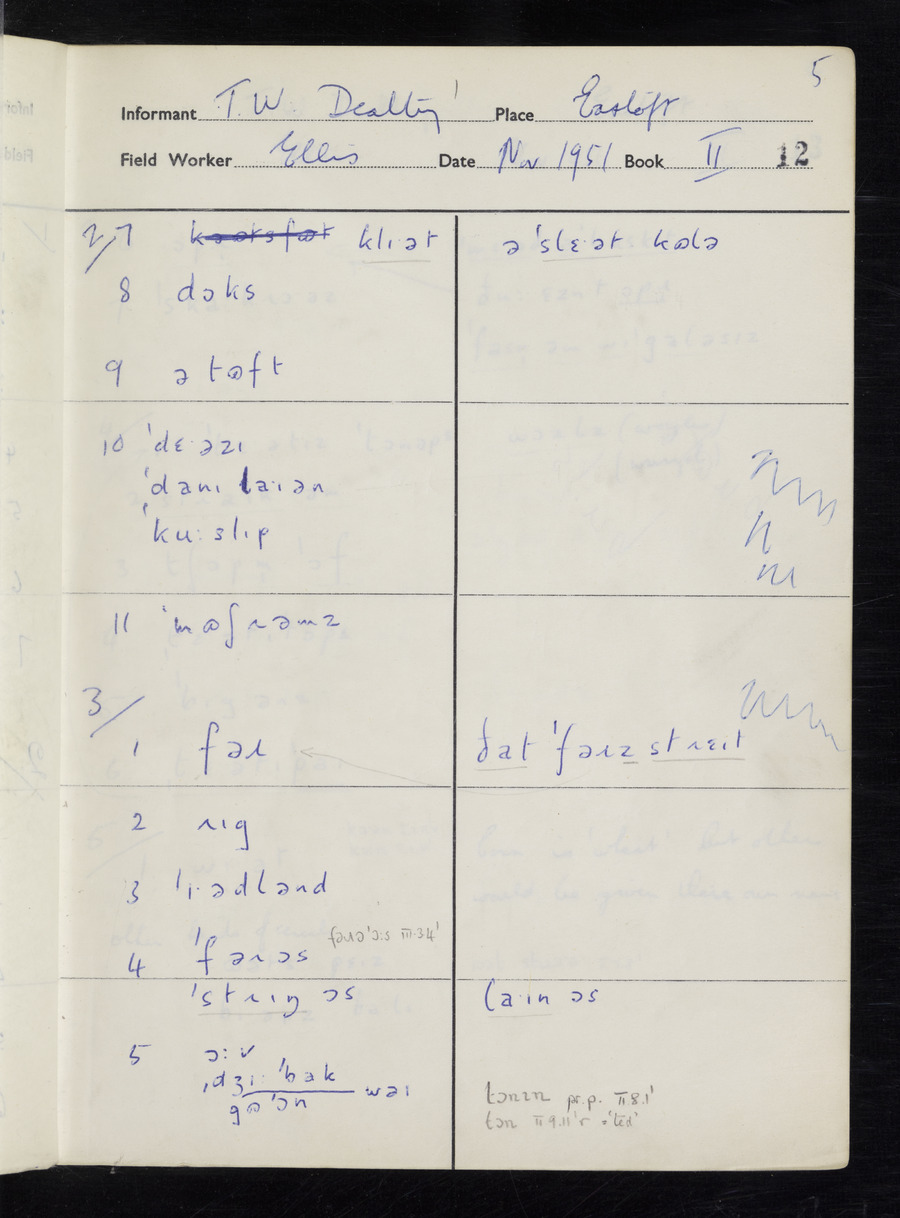 5
Informant T. W. Dealtry Place Eastoft
Field Worker Ellis Date Nov 1951 Book II 12
2/7 klɪ·ət ə'slɛ·ət kɒlə
8 dɔks
9 ə tɒft
10 'dɛ·əzɪ
'danɪ laɪən
'ku:slɪp
11 'mɒʃɹəmz
3/
1 fəɹ ðat 'fəɹz stɹɛɪt
2 ɹɪg
3 'ɪ·ədlənd
4 'fəɹəs fəɹə'ɔ:s III.3.4'
'stɹɪŋ əs la·ɪn əs
5 ɔ:v
ˌdʒi·'bak wəɪ
gɒ'ən
tənɪn pr.p. II 8.1'
tən II 9.11'r ='ted'